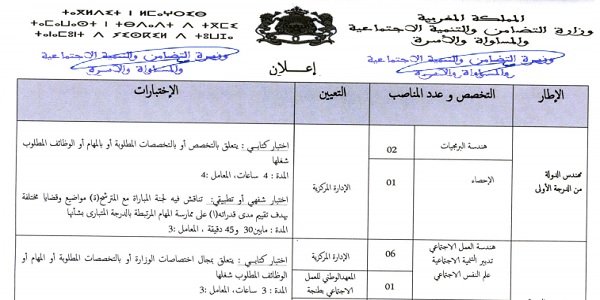 ⵜⴰⴳⵍⴷⵉⵜ ⵏ ⵍⵎⵖⵔⵉⴱ
المملكة المغربية
وزارة التضامن والتنمية الاجتماعية
والمساواة والأسرة
وزارة التضامن والتنمية الاجتماعية
والمساواة والأسرة
وزارة التضامن والتنمية الاجتماعية
والمساواة والأسرة
إعلان
الإطار التخصص و عدد المناصب التعيين الإختبارات
مهندس الدولة
من الدرجة الأولى
هندسة البرمجيات 02
الإحصاء 01
الإدارة المركزية
إختبار كتابي : يتعلق بالتخصص أو بالتخصصات المطلوبة أو بالمهام أو الوظائف المطلوب
شغلها
المدة : 4 ساعات، المعامل :4
إختبار شفهي أو تطبيقي: تناقش فيه لجنة المباراة مع المترشح(ة) مواضيع وقضايا مختلفة
بهدف تقييم مدى قدراته(ا) على ممارسة المهام المرتبطة بالدرجة المتبارى بشأنها
المدة : مابين30 و45 دقيقة ، المعامل :3
هندسة العمل الاجتماعي
تدبير التنمية الاجتماعية
علم النفس الاجتماعي
06
الإدارة المركزية
01
المعهدالوطني للعمل
الاجتماعي بطنجة
إختبار كتابي : يتعلق بمجال اختصاصات الوزارة أو بالتخصصات المطلوبة أو المهام أو
الوظائف المطلوب شغلها
المدة : 3 ساعات، المعامل :3